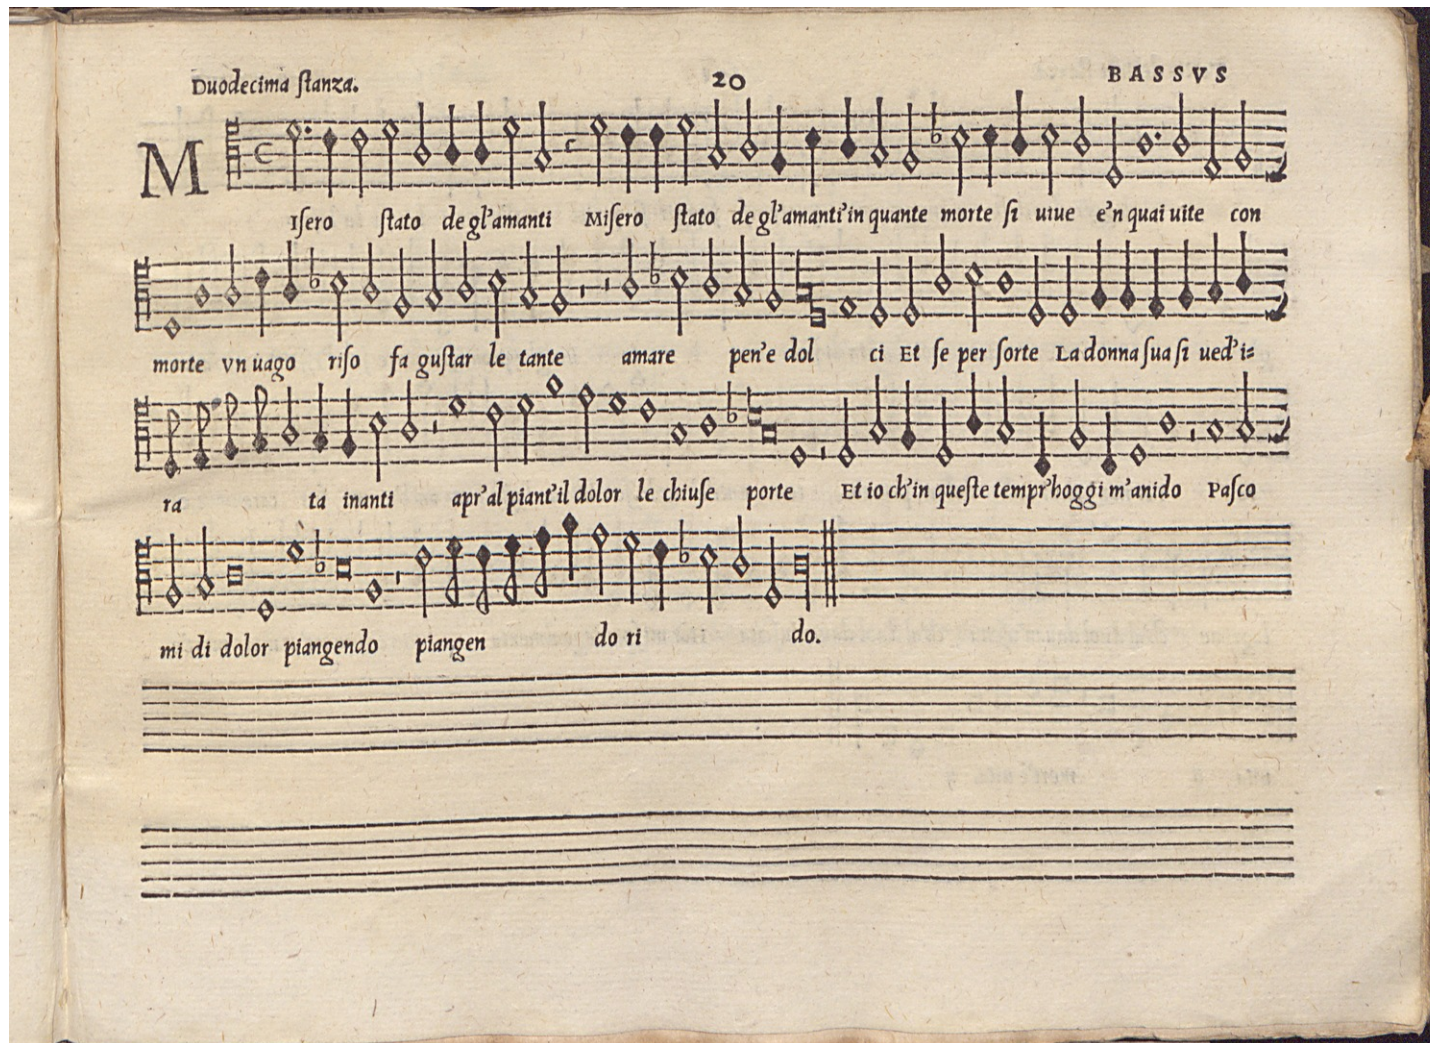 Duodecima ſtanza. 20 BASSVS
MIſero ſtato de gl'amanti Miſero ſtato de gl'amanti'in quante morte ſi uiue e'n quai uite con
morte vn uago riſo fa guſtar le tante amare pen'e dol ci Et ſe per ſorte La donna ſua ſi ued'i=
ra ta inanti apr'al piant'il dolor le chiuſe porte Et io ch'in queſte tempr'hoggi m'anido Paſco
mi di dolor piangendo piangen do ri do.